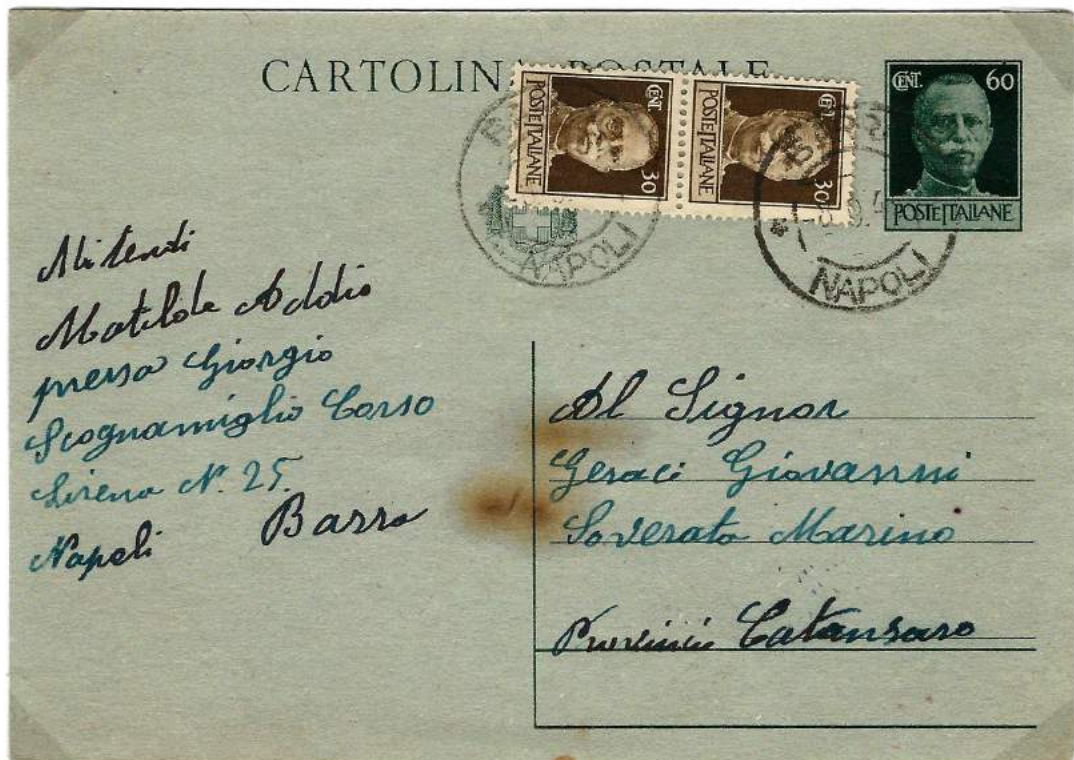 CARTOLINA POSTALE
POSTE ITALIANE
CENT. 30
POSTE ITALIANE
CENT. 30
CENT. 60
POSTE ITALIANE
NAPOLI
NAPOLI
Mitendi
Matilde Addio
presso Giorgio
Scognamiglio Corso
Sirena N. 25.
Napoli Barra
Al Signor
Geraci Giovanni
Soverato Marino
Provincia Catanzaro